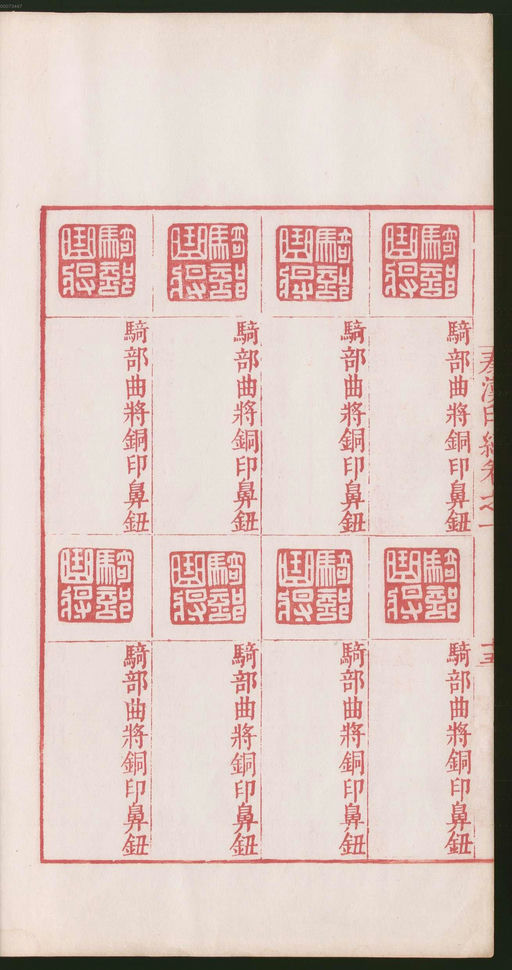 秦漢印統卷之一
十五
騎部曲將
騎部曲將
騎部曲將
騎部曲將
騎部曲將銅印鼻鈕
騎部曲將銅印鼻鈕
騎部曲將銅印鼻鈕
騎部曲將銅印鼻鈕
騎部曲將
騎部曲將
騎部曲將
騎部曲將
騎部曲將銅印鼻鈕
騎部曲將銅印鼻鈕
騎部曲將銅印鼻鈕
騎部曲將銅印鼻鈕